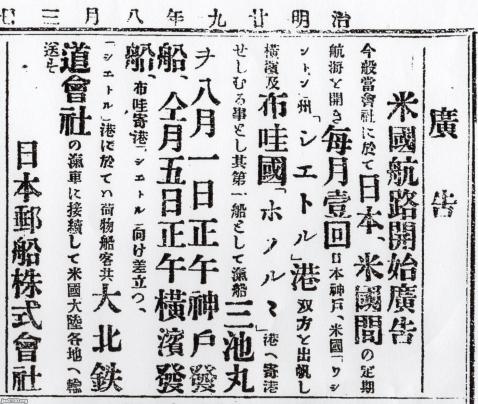 明治廿九年八月三
廣告
米國航路開始廣告
今般當會社に於て日本、米國間の定期
航海を開き毎月壹回日本神戸、米國「ワシ
ントン」州「シエトル」港双方を出帆し
横濱及布哇國「ホノルヽ」港へ寄港
せしむる事とし其第一船として滊船三池丸
ヲ八月一日正午神戸發
船、仝月五日正午横濱發
船、布哇寄港「シエトル」向け差立つ、
「シエトル」港に於てハ荷物船客共大北鉄
道會社の滊車に接續して米國大陸各地へ輸
送す
日本郵船株式會社